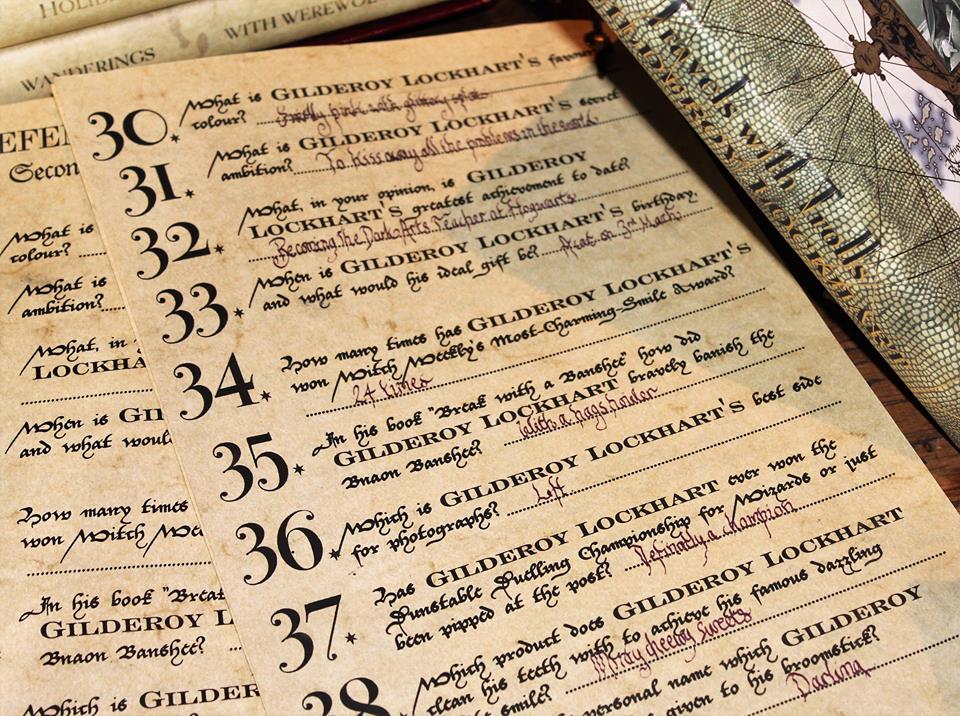 HOLID
WANDERINGS
WITH WEREWOL
Travels with Trolls
GILDEROY LOCKHART
30. What is GILDEROY LOCKHART'S favour
colour?
31. What is GILDEROY LOCKHART'S secret
ambition? To kiss away all the problems in the world
32. What, in your opinion, is GILDEROY
LOCKHART'S greatest achievement to date?
Becoming the Dark Arts Teacher at Hogwarts
33. When is GILDEROY LOCKHART'S birthday,
and what would his ideal gift be? on 3rd March
34. How many times has GILDEROY LOCKHART'S
won Witch Weekly's Most-Charming-Smile Award?
24 times
35. In his book "Break with a Banshee" how did
GILDEROY LOCKHART bravely banish the
Bnaon Banshee? With a
36. Which is GILDEROY LOCKHART'S best side
for photographs? Left
37. Has GILDEROY LOCKHART ever won the
Dunstable Duelling Championship for Wizards or just
been pipped at the post? Definatly a champion
38 Which product does GILDEROY LOCKHART
clean his teeth with to achieve his famous dazzling
smile? sweets
personal name which GILDEROY
given to his broomstick?
Darling
EFEN
Secon
What is
colour?
What is
ambition?
What, in
LOCKHA
When is GIL
and what would
How many times
won Witch We
In his book "Break
GILDEROY L
Bnaon Banshee?
Which is GILDER